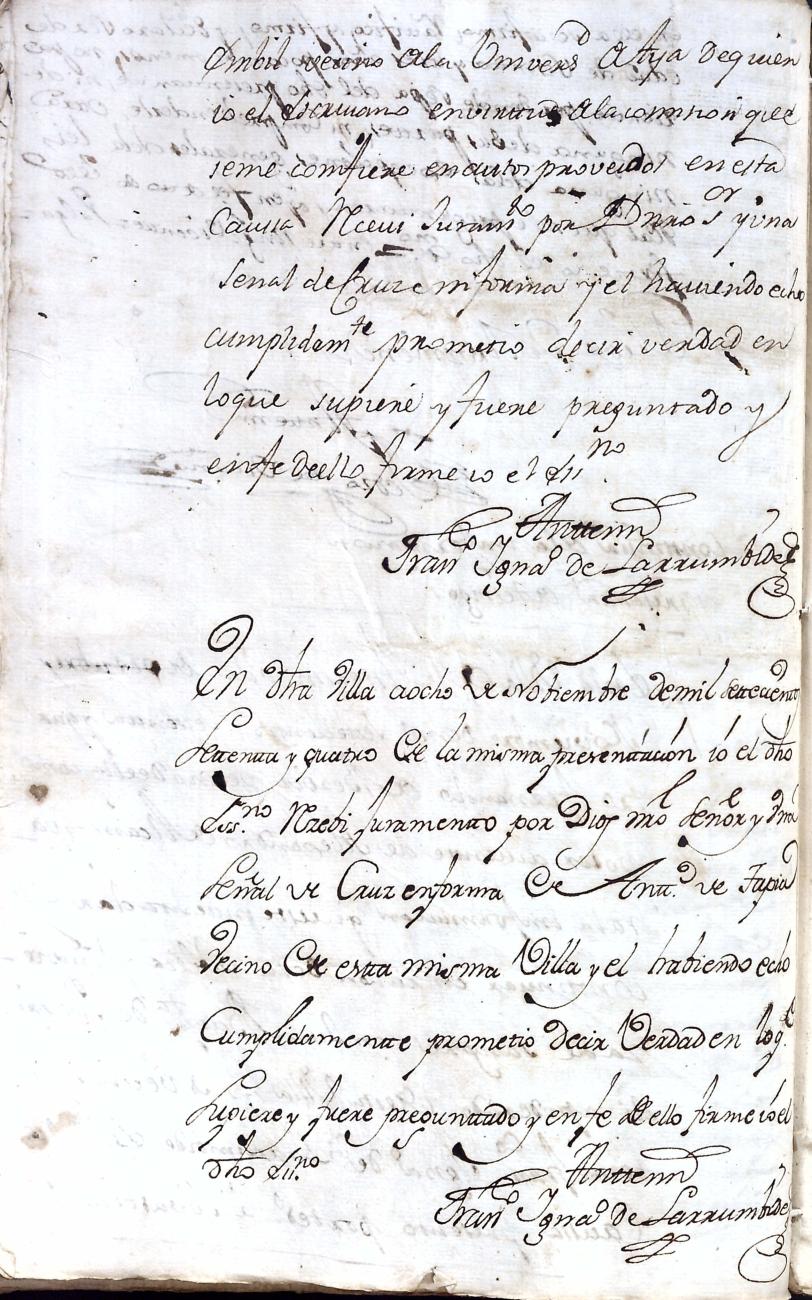 Ambil vecino de la Univers.d de Aya de quien
io el escrivano en virtud de la comision que
se me comfiere en autos proveidos en esta
Caussa Recivi Juram.to por Dios nro S.or y una
señal de Cruz en forma y el haviendo echo
cumplidam.te prometio decir verdad en
loque supiere y fuere preguntado y
en fe de ello firme io el ess.no
Anttemi
Fran.co Igna.o de Larrumbide
En dha Villa a ocho de Noviembre de mil settecientos
settenta y quatro de la misma presentacion io el dho
Ess.no Rezebi Juramentto por Dios nro Señor y Una
Señal de Cruz en forma de Antt.o de Tapia
Vecino de estta misma Villa y el habiendo echo
Cumplidamentte prometio Decir Verdad en lo q.e
Supiere y fuere preguntado y en fe de ello firme io el
dho Ess.no
Anttemi
Fran.co Igna.o de Larrumbide